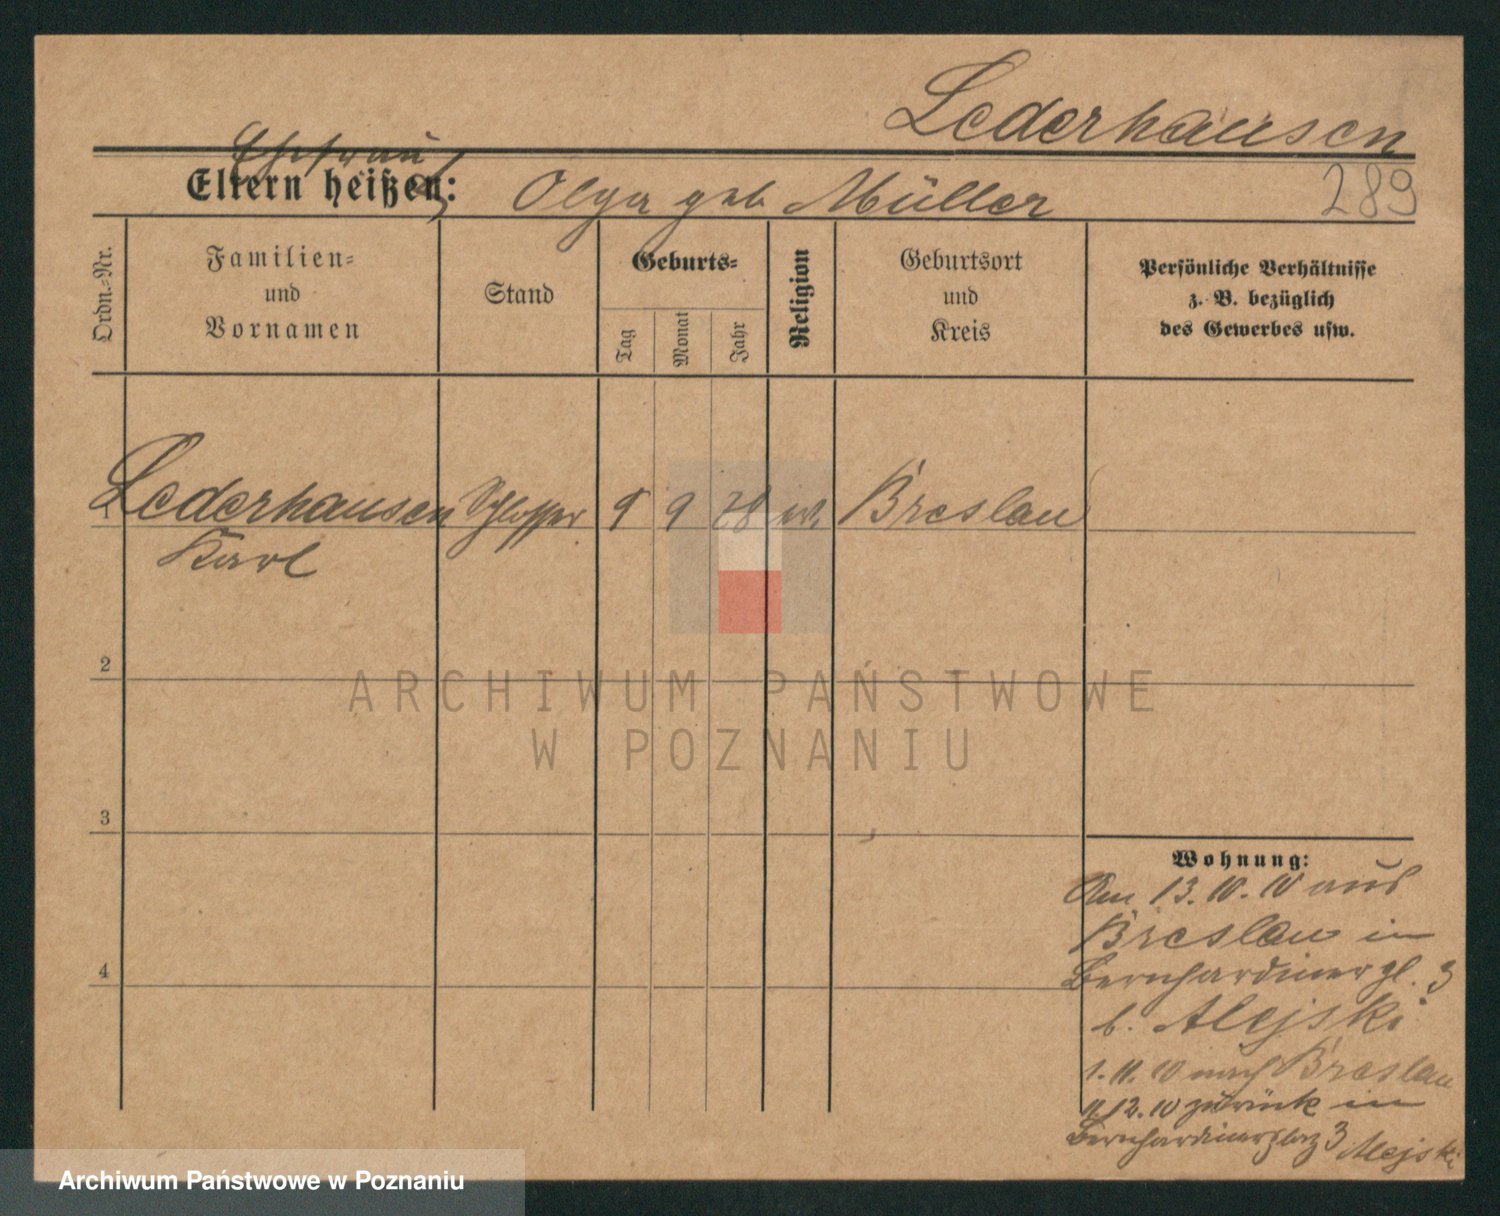 Lederhausen
Ehefrau
Eltern heißen: Olga geb Müller
289
Ordn.-Nr.
Familien-
und
Vornamen
Stand
Geburts-
Tag
Monat
Jahr
Religion
Geburtsort
und
Kreis
Persönliche Verhältnisse
z. B. bezüglich
des Gewerbes usw.
1 Lederhausen Schlosser 9 9 78 ev. Breslau
Karl
2
3
4
Wohnung:
Am 13.10.10 aus
Breslau in
Bernhardinerpl. 3
b. Alejski
1.11.10 nach Breslau
11.12.10 zurück in
Bernhardinerplaz 3 Alejski
ARCHIWUM PAŃSTWOWE
W POZNANIU
Archiwum Państwowe w Poznaniu